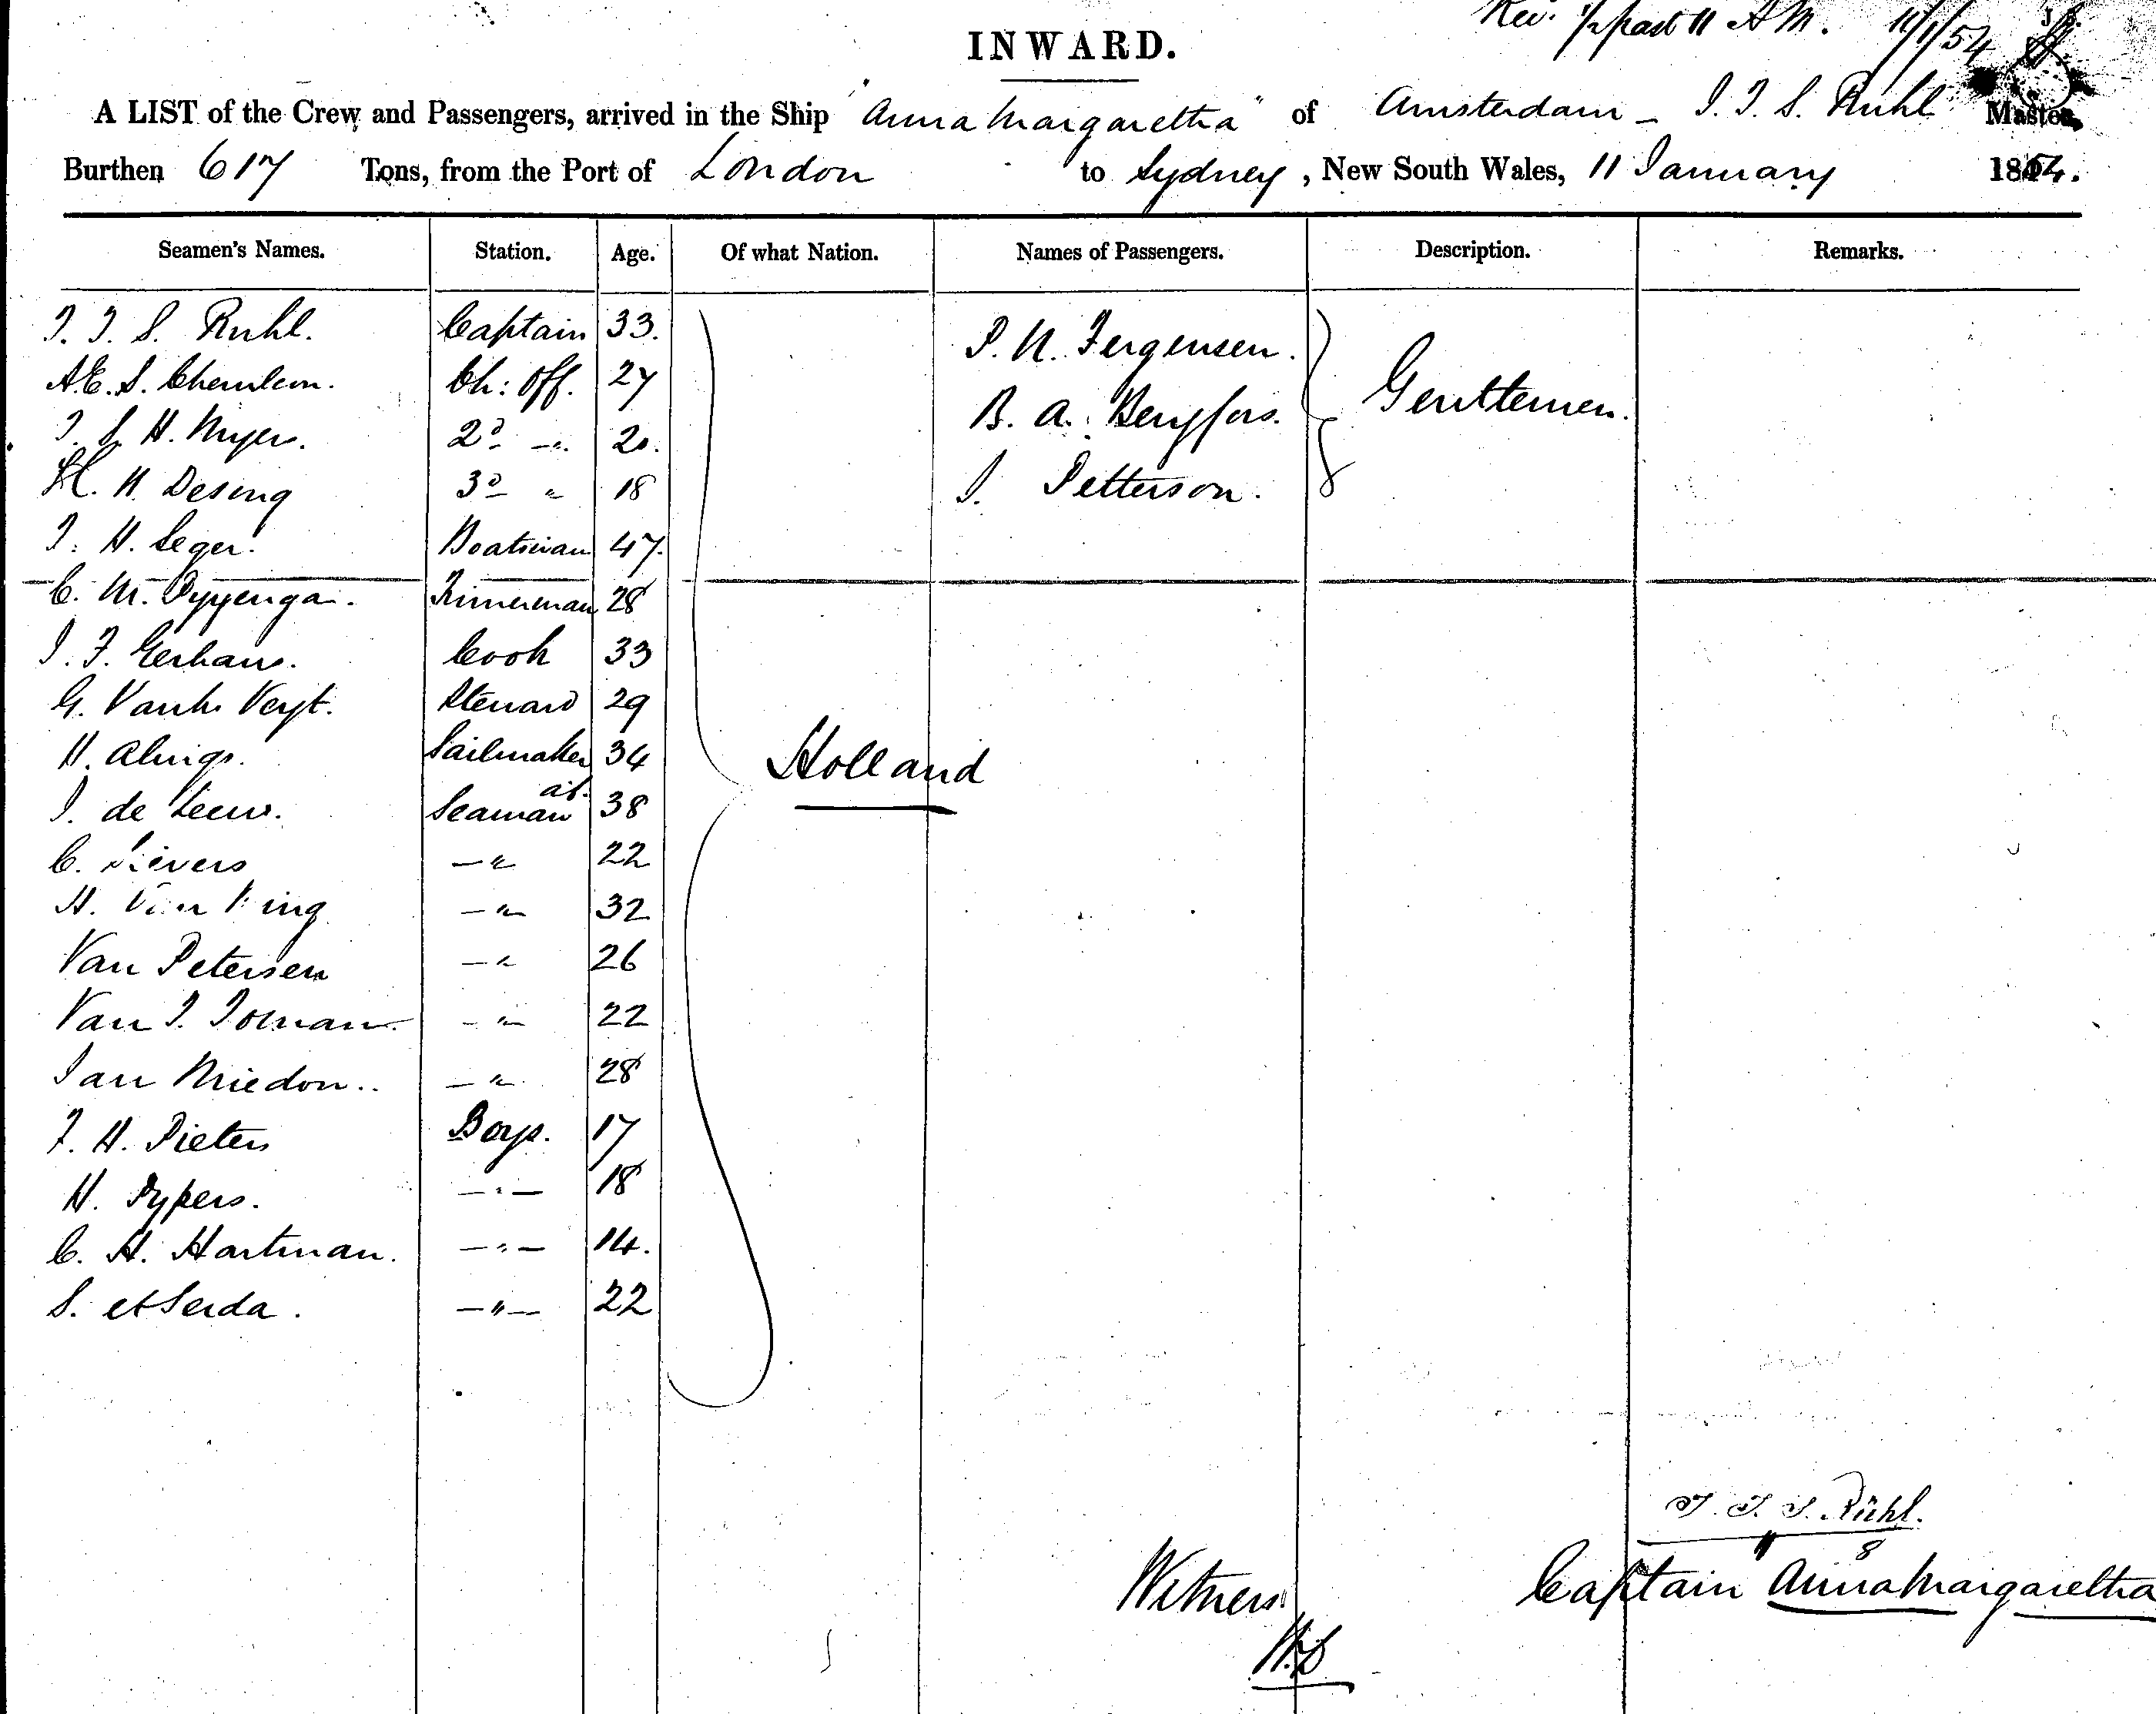 Rec. 1/2 past 11 A M. 11/1/54
INWARD.
A LIST of the Crew and Passengers, arrived in the Ship "Anna Margaretha" of Amsterdam - I. I. S. Ruhl Master,
Burthen 617 Tons, from the Port of London to Sydney, New South Wales, 11 January 1854.
Seamen's Names. Station. Age. Of what Nation. Names of Passengers. Description. Remarks.
I. I. S. Ruhl. Captain 33. P. N. Fergensen.
A. E. S. Ch: Off. 27 B. A. Gentlemen.
I. S. H. Myers. 2d -"- 20.
H. H. Desing 3d " 18 I. Petterson.
I. H. Seger. Boatsman 47.
C. M. Timerman 28
I. F. Gerhaus. Cook 33
G. Steward 29
H. Sailmaker 34 Holland
I. de Leeuw. Seaman ab. 38
C. Sievers -"- 22
H. Van -"- 32
Van Petersen -"- 26
Van I. -"- 22
Jan Miedon.. -"- 28
F. H. Pieters Boys. 17
H. Pypers. -"- 18
C. H. Hartman. -"- 14.
S. -"- 22
I. I. S. Rühl.
Witness Captain Anna Margaretha